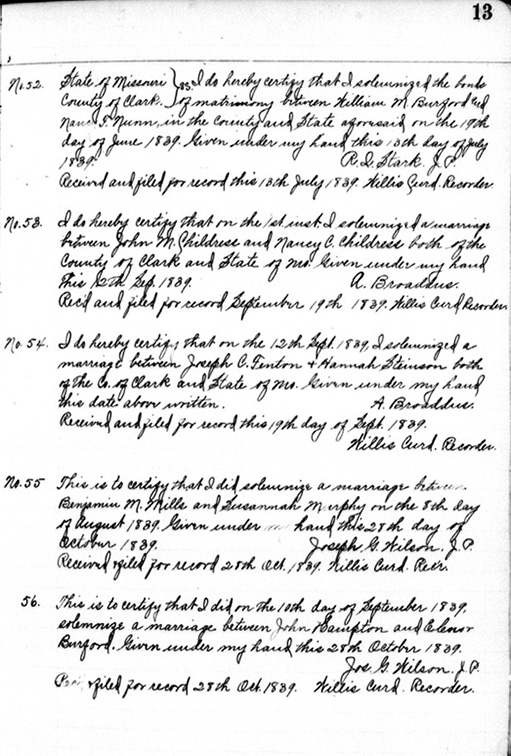 13
No. 52. State of Missouri } ss. I do hereby certify that I solemnized the bonds
County of Clark. } of matrimony between William M. Burford and
Nancy F. Nunn, in the County and State aforesaid on the 19th
day of June 1839. Given under my hand this 13th day of July
1839. R. D. Stark. J. P.
Received and filed for record this 13th July 1839. Willis Curd. Recorder.
No. 53. I do hereby certify that on the 1st inst. I solemnized a marriage
between John M. Childress and Nancy C. Childress both of the
County of Clark and State of Mo. Given under my hand
This 12th Sep. 1839. A. Broaddus.
Rec'd and filed for record September 19th 1839. Willis Curd Recorder.
No. 54. I do hereby certify that on the 12th Sept. 1839, I solemnized a
marriage between Joseph C. Fenton + Hannah Stinson both
of the Co. of Clark and State of Mo. Given under my hand
this date above written. A. Broaddus.
Received and filed for record this 19th day of Sept. 1839.
Willis Curd. Recorder.
No. 55 This is to certify that I did solemnize a marriage between
Benjamin M. Mills and Susannah Murphy on the 8th day
of August 1839. Given under hand this 28th day of
October 1839. Joseph G. Wilson. J. P.
Received + filed for record 28th Oct. 1839. Willis Curd. Recr.
56. This is to certify that I did on the 10th day of September 1839.
solemnize a marriage between John Hampton and Elenor
Burford. Given under my hand this 28th October 1839.
Jos. G. Wilson. J. P.
+ filed for record 28th Oct. 1839. Willis Curd. Recorder.